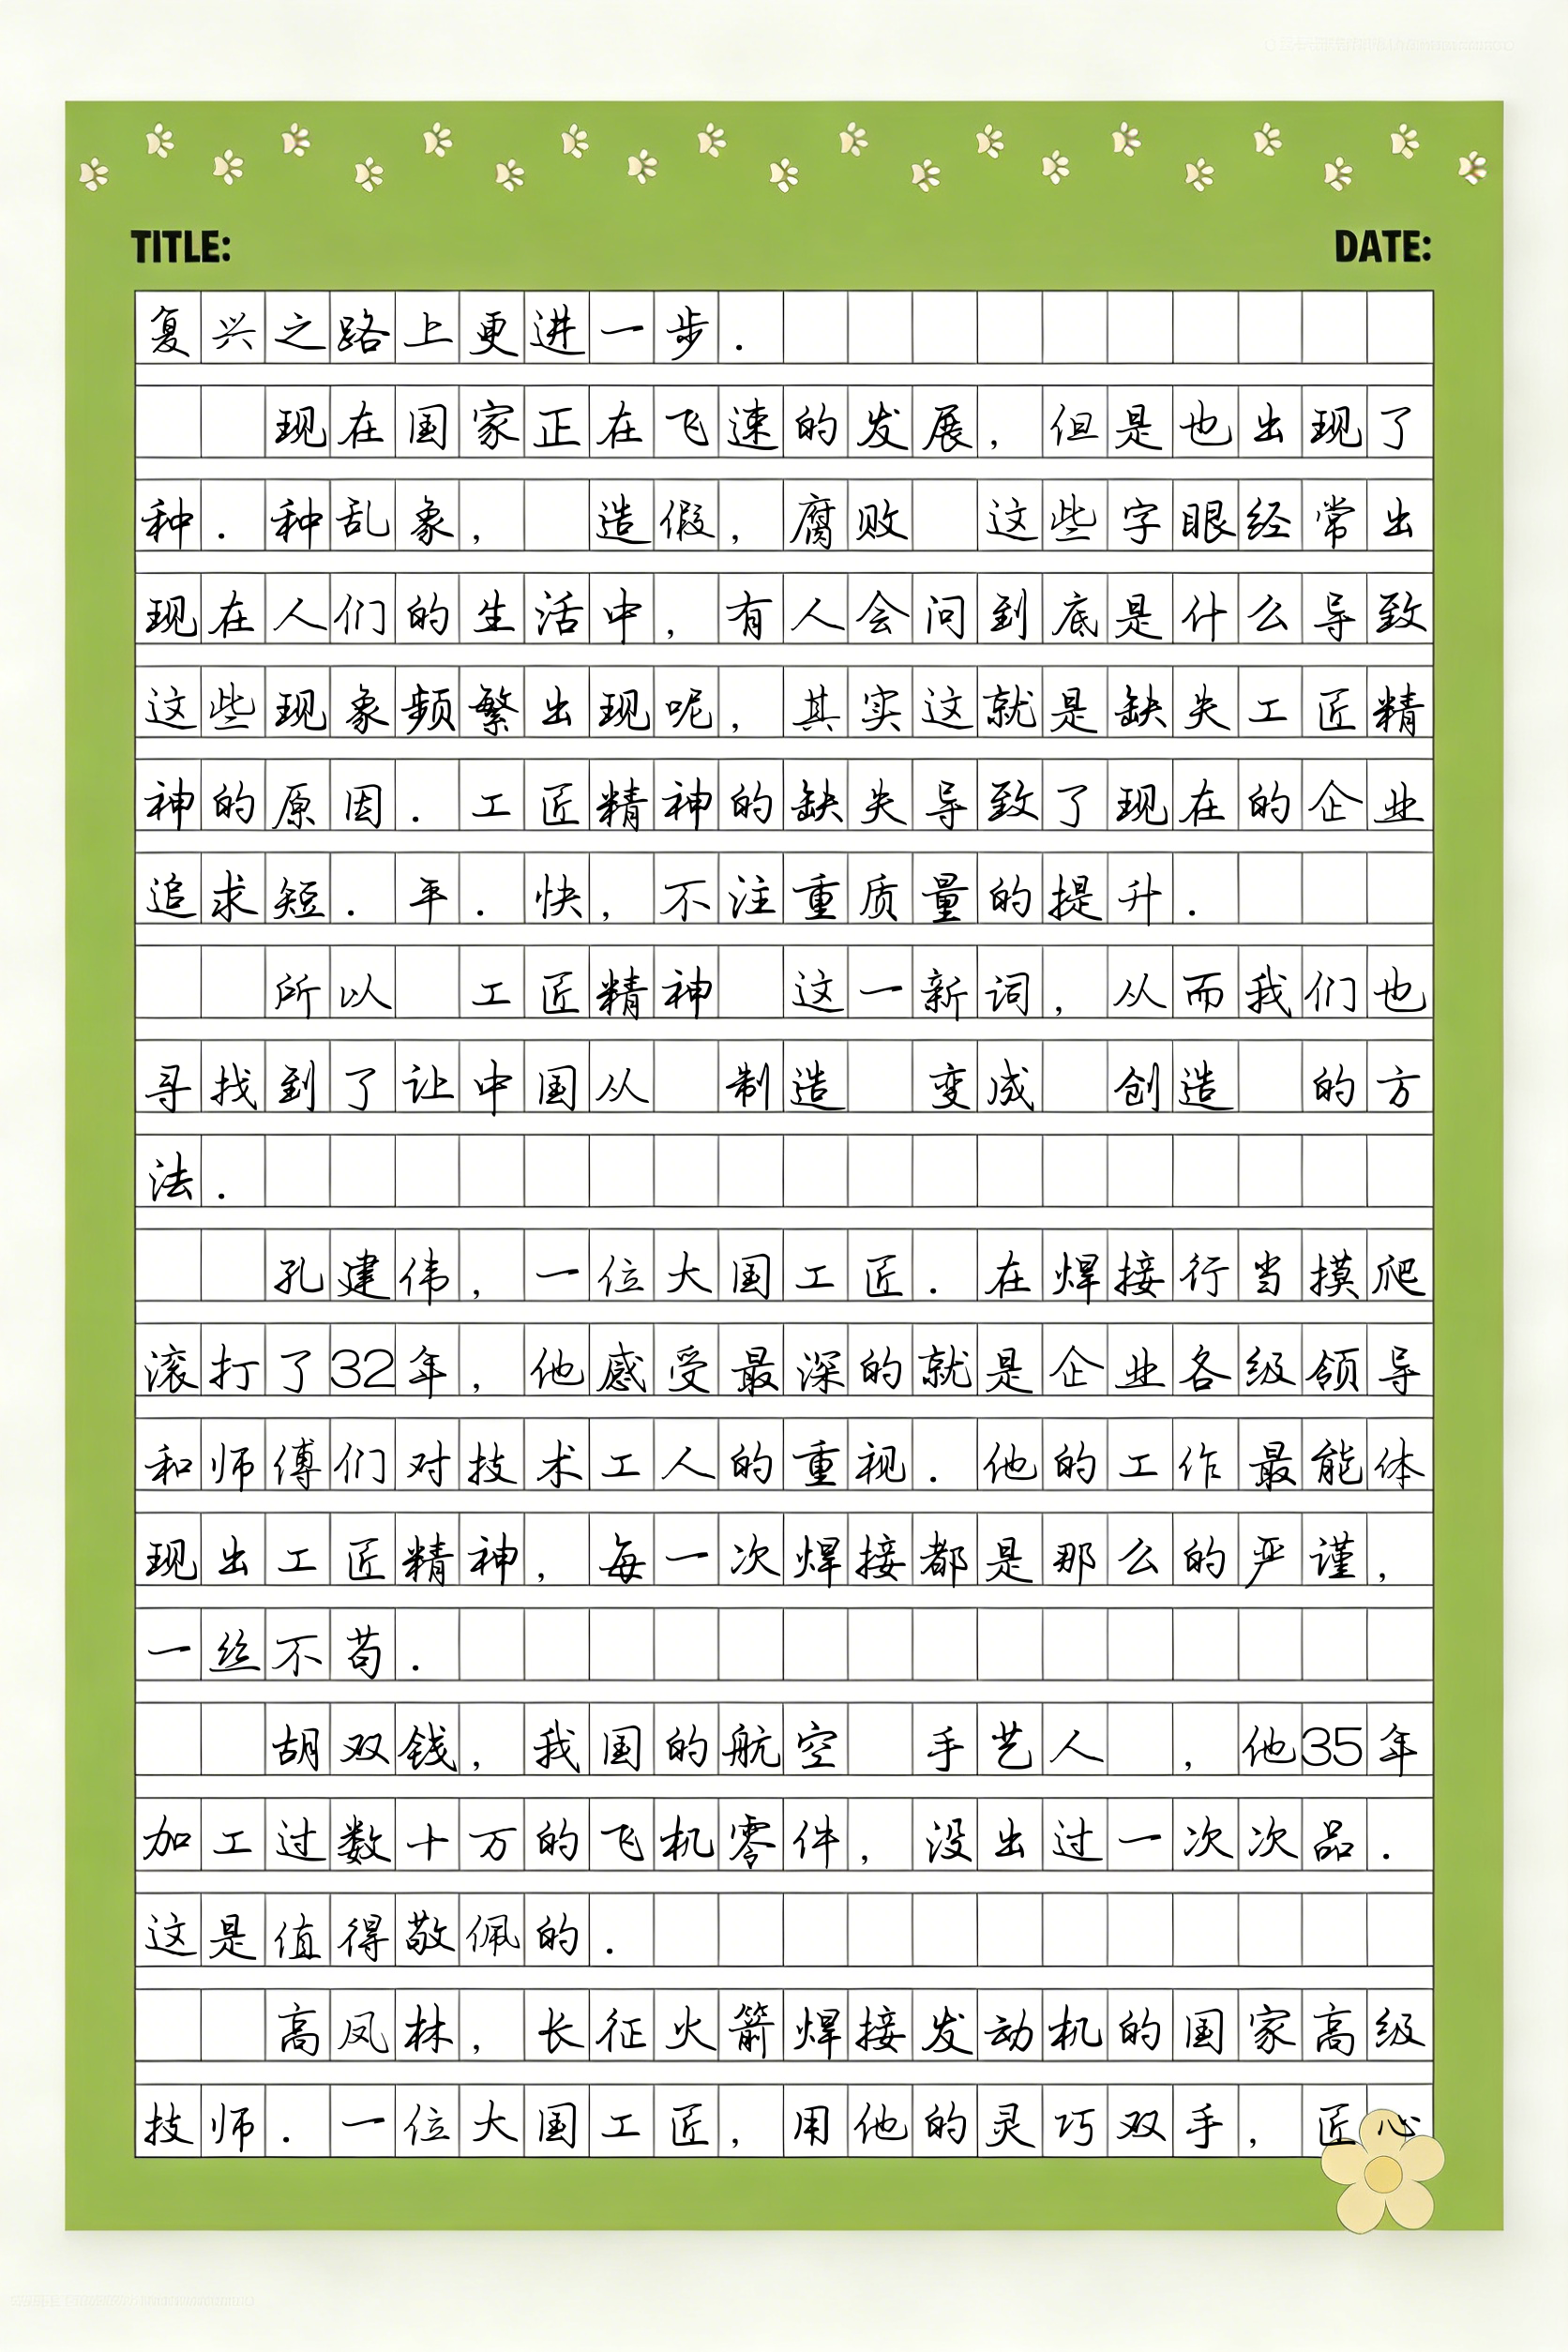 TITLE: DATE:
复兴之路上更进一步.
现在国家正在飞速的发展,但是也出现了
种.种乱象, 造假,腐败 这些字眼经常出
现在人们的生活中,有人会问到底是什么导致
这些现象频繁出现呢,其实这就是缺失工匠精
神的原因.工匠精神的缺失导致了现在的企业
追求短.平.快,不注重质量的提升.
所以 工匠精神 这一新词,从而我们也
寻找到了让中国从 制造 变成 创造 的方
法.
孔建伟,一位大国工匠.在焊接行当摸爬
滚打了32年,他感受最深的就是企业各级领导
和师傅们对技术工人的重视.他的工作最能体
现出工匠精神,每一次焊接都是那么的严谨,
一丝不苟.
胡双钱,我国的航空 手艺人 ,他35年
加工过数十万的飞机零件,没出过一次次品.
这是值得敬佩的.
高凤林,长征火箭焊接发动机的国家高级
技师.一位大国工匠,用他的灵巧双手,匠心